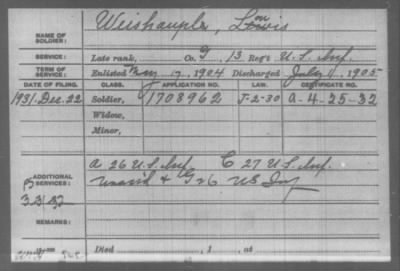 NAME OF SOLDIER: Weishaupler, Louis
SERVICE: Late rank, Co. G 13 Reg't U.S. Inf.
TERM OF SERVICE: Enlisted May 17, 1904 Discharged July 1, 1905
DATE OF FILING. CLASS. APPLICATION NO. LAW. CERTIFICATE NO.
1931. Dec. 22 Soldier, 1708962 J-2-30 a-4-25-32
Widow,
Minor,
ADDITIONAL SERVICES: A 26 U.S. Inf. C 27 U.S. Inf.
& G 26 US Inf
REMARKS:
Died , 1 , at